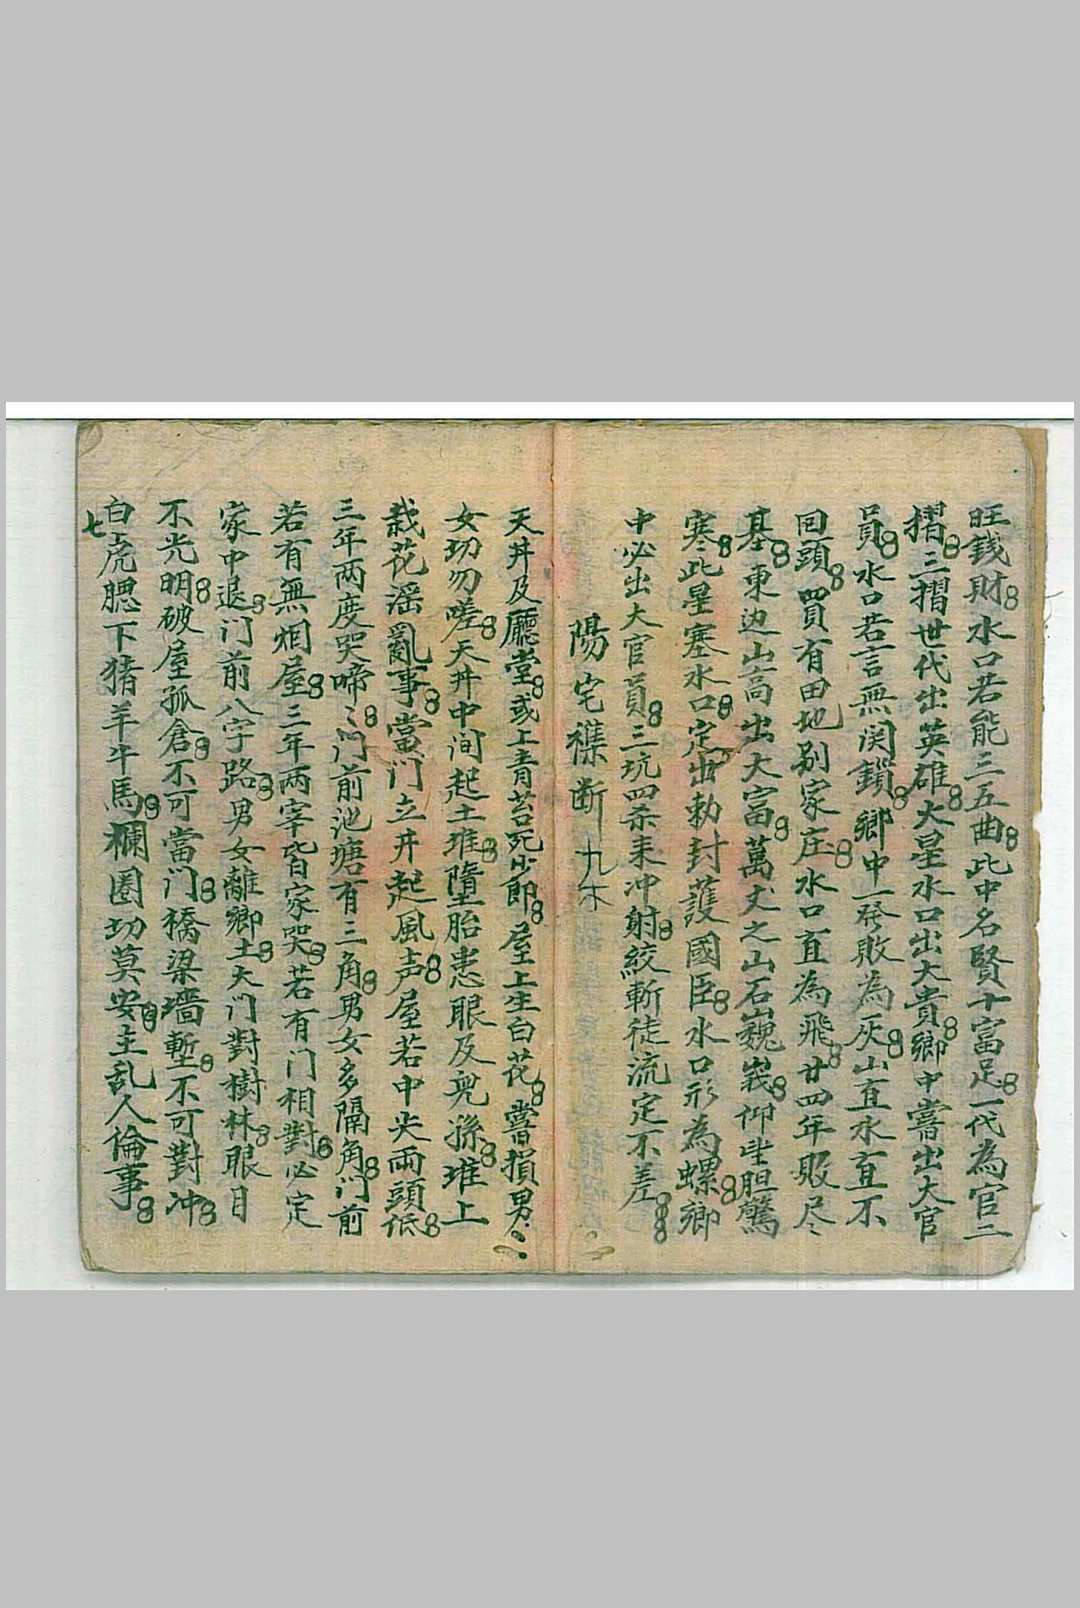 旺錢財水口若能三五曲此中名賢十富足一代為官二
摺三摺世代出英雄大星水口出大貴鄉中當出大官
員水口若言無関鎖鄉中一发敗為灰山直水直不
回頭買有田地别家庄水口直為飛廿四年敗尽
基東边山高出大富萬丈之山石巍峩仰坐胆驚
寒此星塞水口定出勅封護國臣水口形為螺鄉
中必出大官員三坑四杀来冲射絞斬徒流定不差
陽宅襍断 九木
天井及廳堂或上青苔死少郎屋上生白花當損男
女切勿嗟天井中间起土堆墮胎患眼及兒孫堆上
栽花滛亂事當门立井起風声屋若中尖両頭低
三年两度哭啼门前池塘有三角男女多隔角门前
若有無烟屋三年两宰皆家哭若有门相對必定
家中退门前八字路男女離鄉土大门對樹林眼目
不光明破屋孤倉不可當门橋梁墻塹不可對冲
白虎腮下猪羊牛馬欄圈切莫安主乱人倫事
七